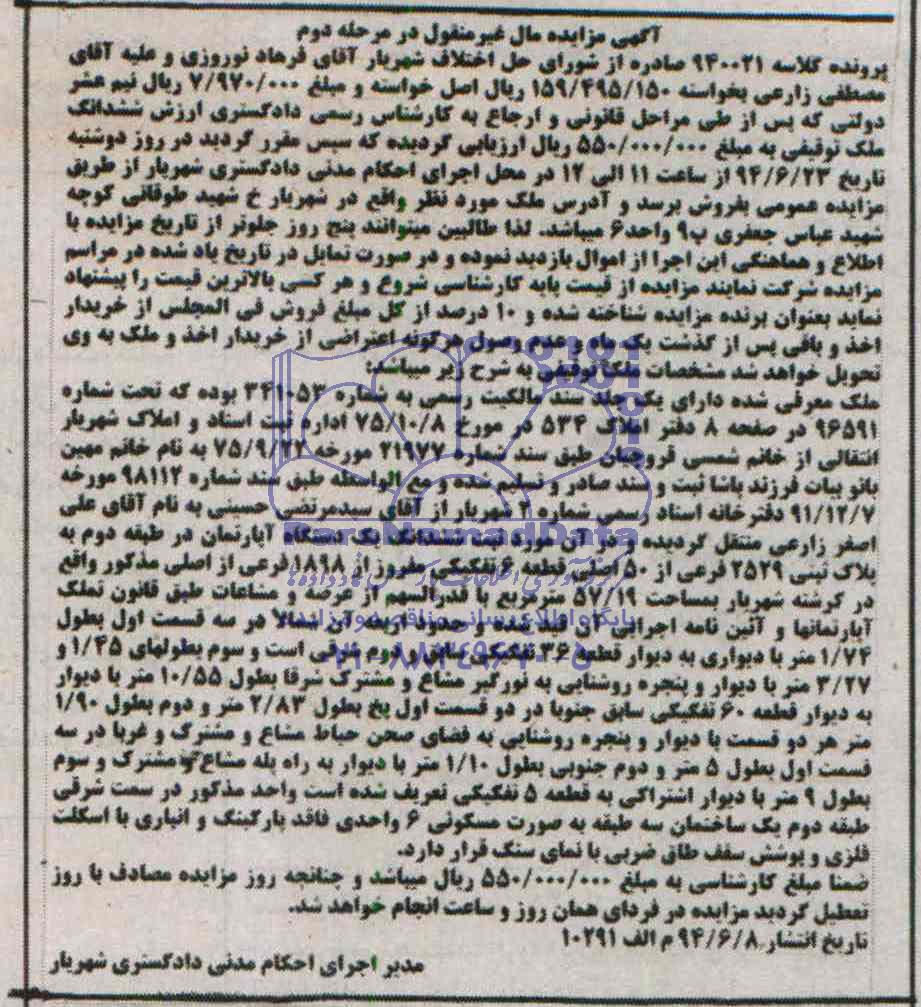 آگهی مزایده مال غیرمنقول در مرحله دوم
پرونده کلاسه ۹۴۰۰۲۱ صادره از شورای حل اختلاف شهریار آقای فرهاد نوروزی و علیه آقای
مصطفی زارعی بخواسته ۱۵۹/۴۹۵/۱۵۰ ریال اصل خواسته و مبلغ ۷/۹۷۰/۰۰۰ ریال نیم عشر
دولتی که پس از طی مراحل قانونی و ارجاع به کارشناس رسمی دادگستری ارزش ششدانگ
ملک توقیفی به مبلغ ۵۵۰/۰۰۰/۰۰۰ ریال ارزیابی گردیده که سپس مقرر گردید در روز دوشنبه
تاریخ ۹۴/۶/۲۳ از ساعت ۱۱ الی ۱۲ در محل اجرای احکام مدنی دادگستری شهریار از طریق
مزایده عمومی بفروش برسد و آدرس ملک مورد نظر واقع در شهریار خ شهید طوقانی کوچه
شهید عباس جعفری پ۹ واحد۶ میباشد. لذا طالبین میتوانند پنج روز جلوتر از تاریخ مزایده با
اطلاع و هماهنگی این اجرا از اموال بازدید نموده و در صورت تمایل در تاریخ یاد شده در مراسم
مزایده شرکت نمایند مزایده از قیمت پایه کارشناسی شروع و هر کسی بالاترین قیمت را پیشنهاد
نماید بعنوان برنده مزایده شناخته شده و ۱۰ درصد از کل مبلغ فروش فی المجلس از خریدار
اخذ و باقی پس از گذشت یک ماه و عدم وصول هرگونه اعتراضی از خریدار اخذ و ملک به وی
تحویل خواهد شد مشخصات ملک توقیفی به شرح زیر میباشد:
ملک معرفی شده دارای یک جلد سند مالکیت رسمی به شماره ۳۴۱۰۵۳ بوده که تحت شماره
۹۶۵۹۱ در صفحه ۸ دفتر املاک ۵۳۴ در مورخ ۷۵/۱۰/۸ اداره ثبت اسناد و املاک شهریار
انتقالی از خانم شمسی قروچیان طبق سند شماره ۲۱۹۷۷ مورخه ۷۵/۹/۲۲ به نام خانم مهین
بانو بیات فرزند پاشا ثبت و سند صادر و تسلیم شده و مع الواسطه طبق سند شماره ۹۸۱۱۲ مورخه
۹۱/۱۲/۷ دفترخانه اسناد رسمی شماره ۲ شهریار از آقای سیدمرتضی حسینی به نام آقای علی
اصغر زارعی منتقل گردیده و در آن مورد ثبت ششدانگ یک دستگاه آپارتمان در طبقه دوم به
پلاک ثبتی ۲۵۲۹ فرعی از ۵۰ اصلی قطعه ۶ تفکیکی مفروز از ۱۸۹۸ فرعی از اصلی مذکور واقع
در کرشته شهریار بمساحت ۵۷/۱۹ مترمربع با قدرالسهم از عرصه و مشاعات طبق قانون تملک
آپارتمانها و آئین نامه اجرائی آن قید شده و حدود اربعه آن شمالا در سه قسمت اول بطول
۱/۷۴ متر با دیواری به دیوار قطعه ۳۶ تفکیکی سابق و دوم شرقی است و سوم بطولهای ۱/۴۵ و
۳/۲۷ متر با دیوار و پنجره روشنایی به نورگیر مشاع و مشترک شرقا بطول ۱۰/۵۵ متر با دیوار
به دیوار قطعه ۶۰ تفکیکی سابق جنوبا در دو قسمت اول پخ بطول ۲/۸۳ متر و دوم بطول ۱/۹۰
متر هر دو قسمت با دیوار و پنجره روشنایی به فضای صحن حیاط مشاع و مشترک و غربا در سه
قسمت اول بطول ۵ متر و دوم جنوبی بطول ۱/۱۰ متر با دیوار به راه پله مشاع و مشترک و سوم
بطول ۹ متر با دیوار اشتراکی به قطعه ۵ تفکیکی تعریف شده است واحد مذکور در سمت شرقی
طبقه دوم یک ساختمان سه طبقه به صورت مسکونی ۶ واحدی فاقد پارکینگ و انباری با اسکلت
فلزی و پوشش سقف طاق ضربی با نمای سنگ قرار دارد.
ضمنا مبلغ کارشناسی به مبلغ ۵۵۰/۰۰۰/۰۰۰ ریال میباشد و چنانچه روز مزایده مصادف با روز
تعطیل گردید مزایده در فردای همان روز و ساعت انجام خواهد شد.
تاریخ انتشار ۹۴/۶/۸ م الف ۱۰۲۹۱
مدیر اجرای احکام مدنی دادگستری شهریار